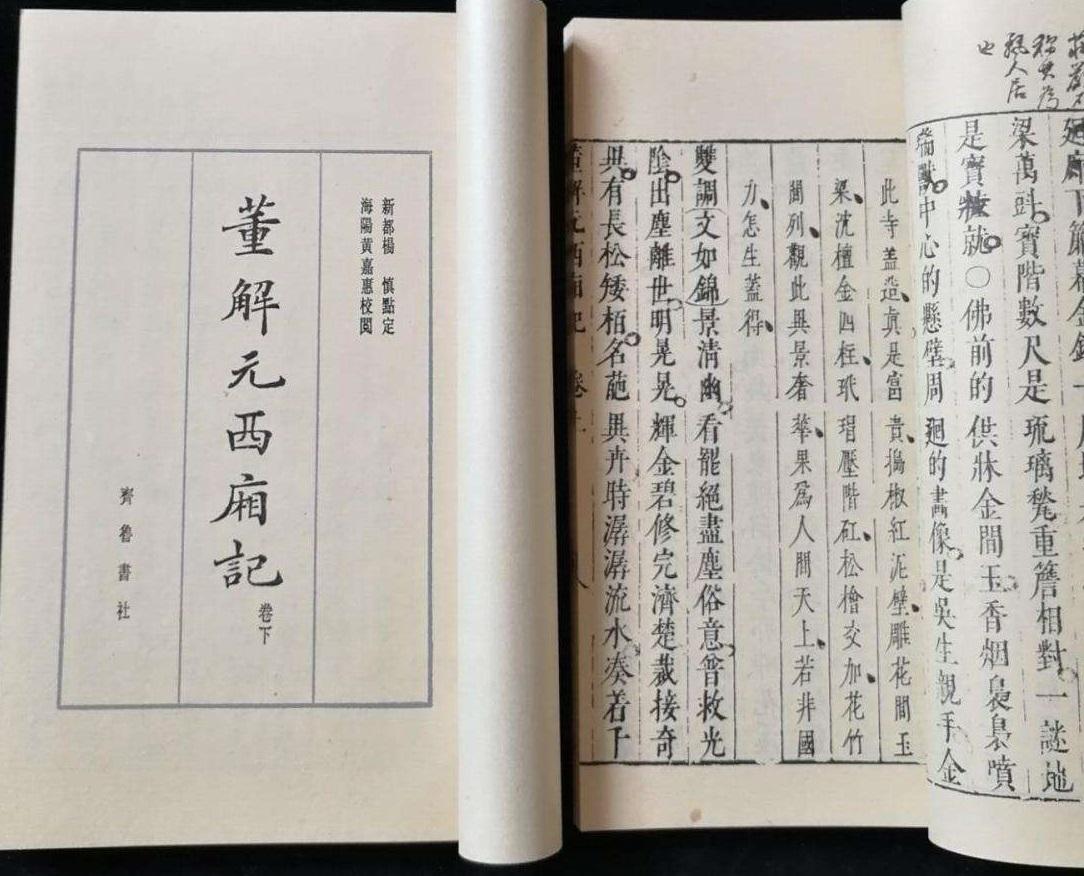 新都楊 慎點定
海陽黃嘉惠校閱
董解元西廂記 卷下
齊魯書社
人居
也
梁萬斗寶階數尺是琉璃甃重簷相對一謎地
是寶粧就○佛前的供牀金間玉香烟裊裊噴
瑞獸中心的懸壁周廻的畫像是吳生親手金
此寺蓋造真是富貴搗椒紅泥壁雕花間玉
梁沈檀金四柱玳瑁壓階矼松檜交加花竹
間列觀此異景奢華果為人間天上若非國
力怎生蓋得
雙調文如錦景清幽看罷絕盡塵俗意普救光
陰出塵離世明晃晃輝金碧修完濟楚裁接奇
異有長松矮栢名葩異卉時潺潺流水凑着千
董解元西廂記 卷上 八